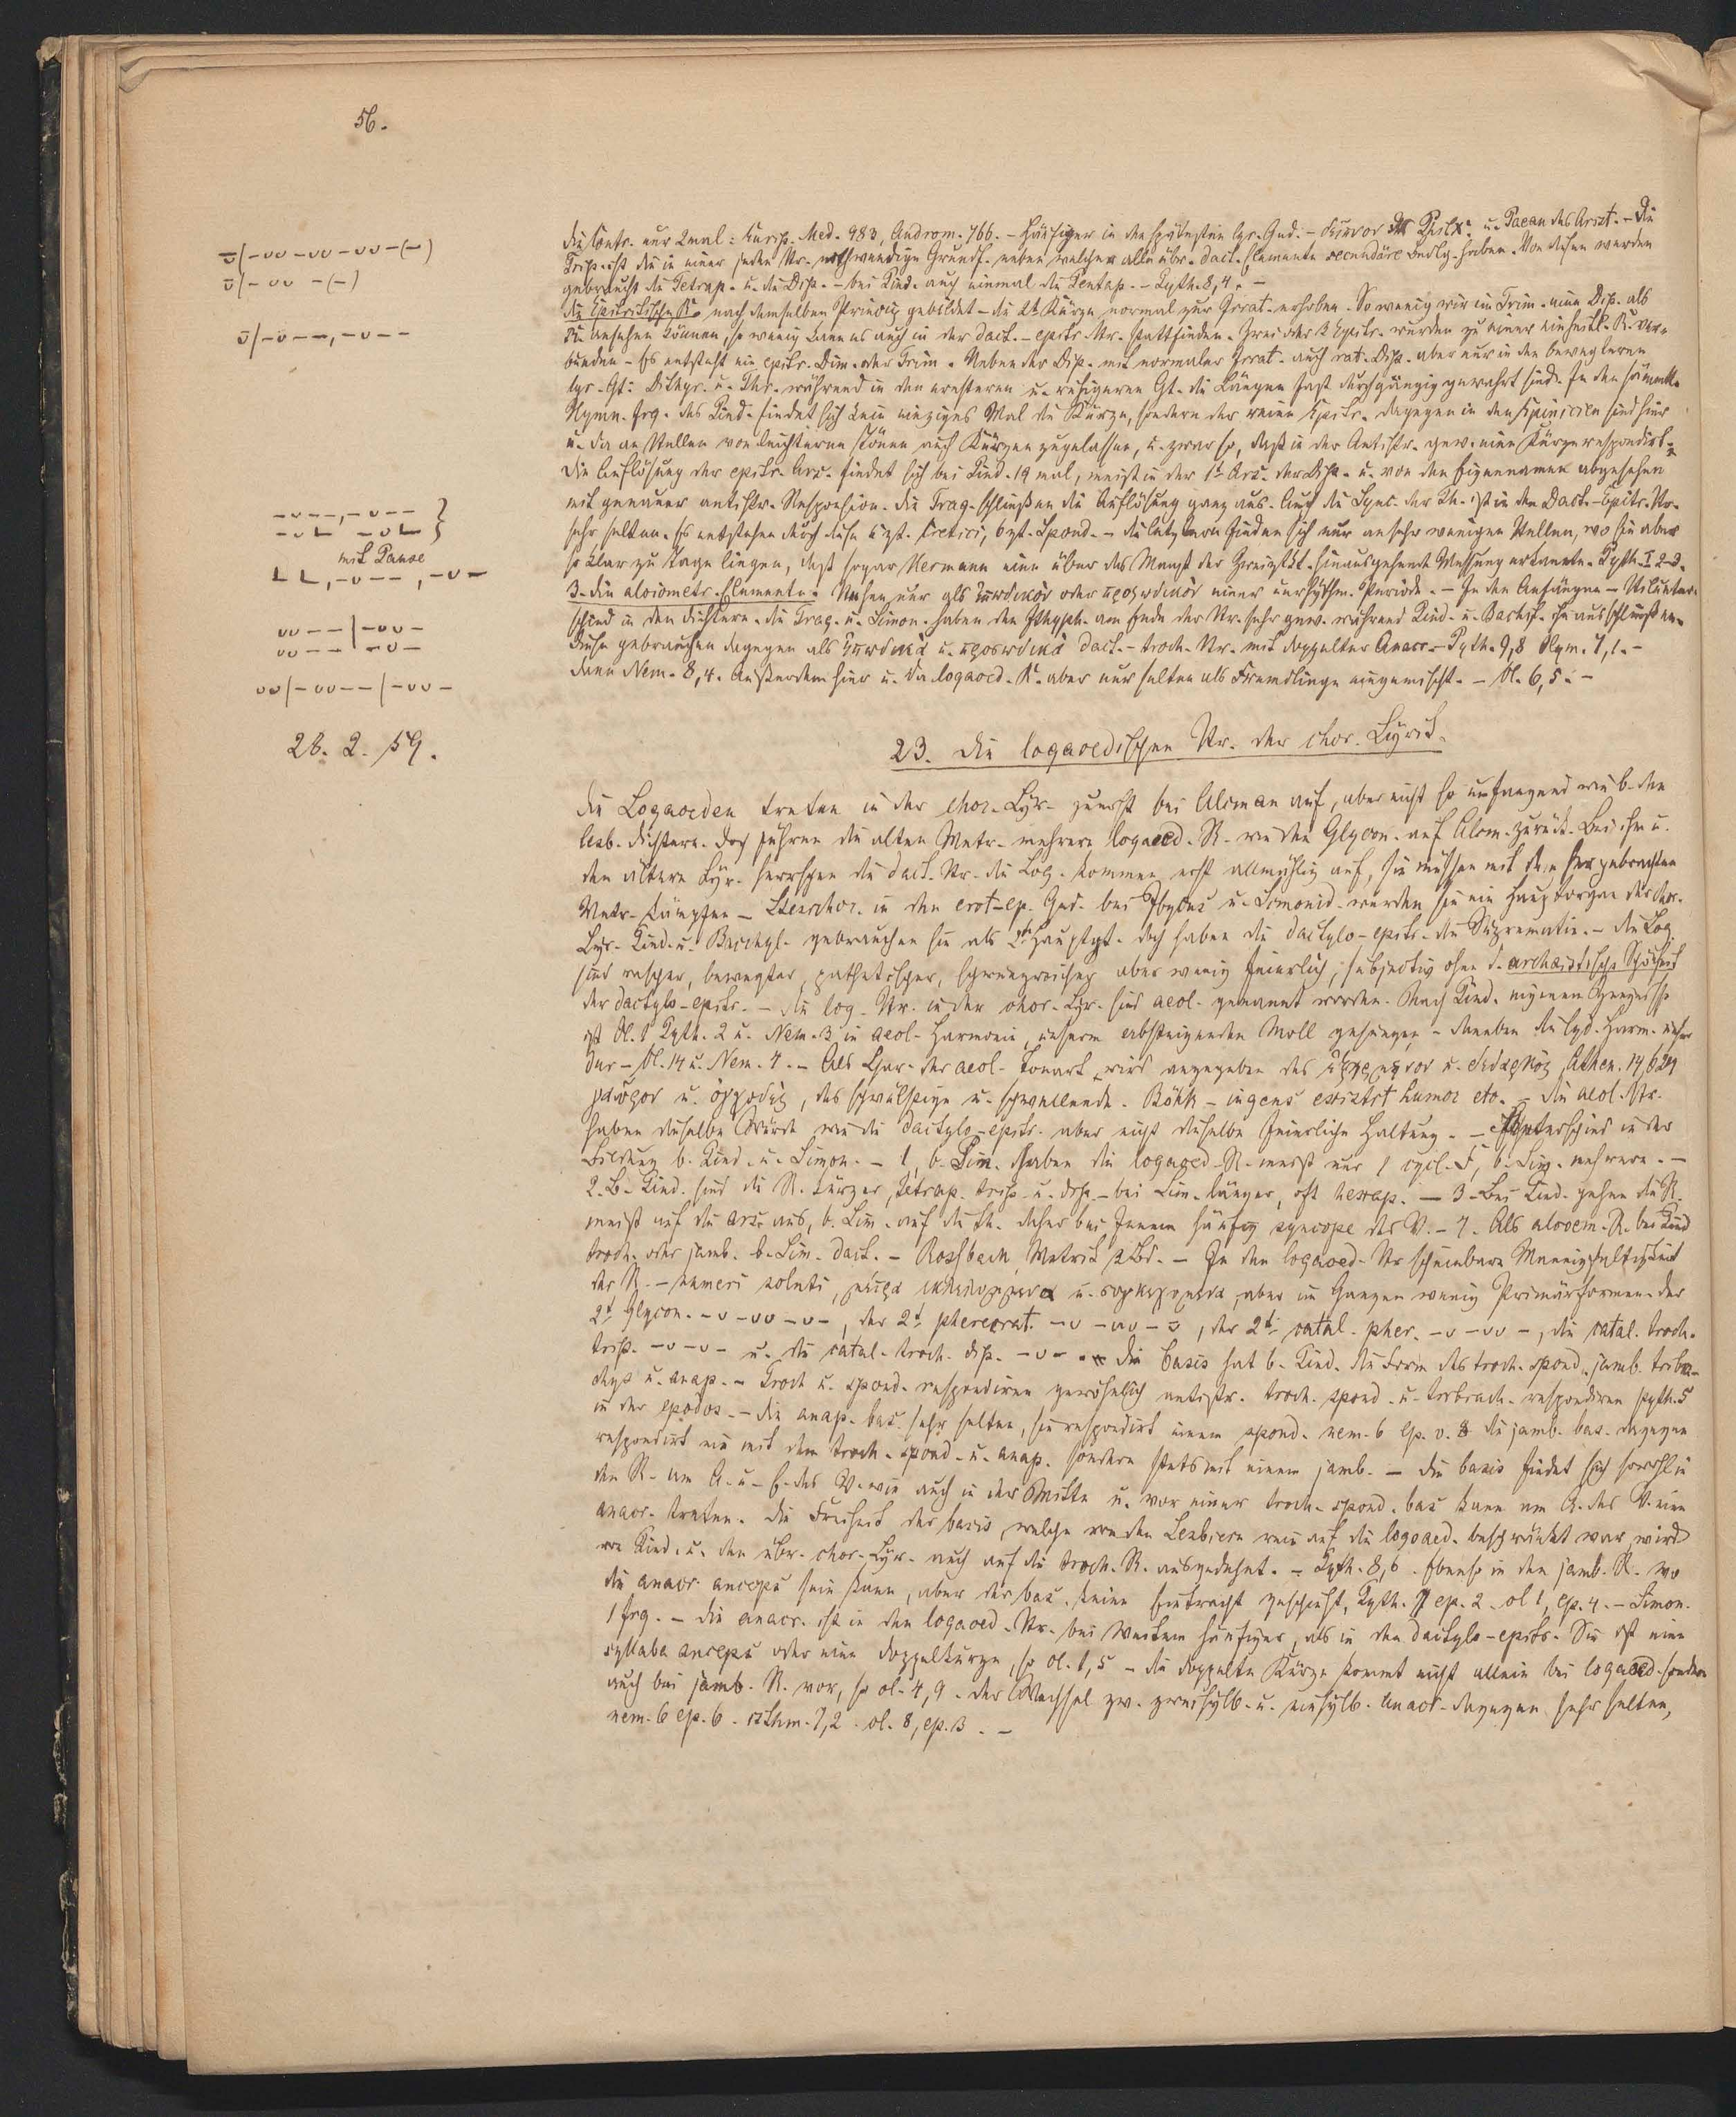 56.
die Contr. nur 2mal: Eurip. Med. 983, Androm. 766. – Häufiger in den spätesten lyr. Ged. – u. Paean des Arist. – Die
Trip. ist die in einer jeden Str. nothwendige Grundf. neben welcher alle übr. dact. Elemente secundäre haben. Von diesen werden
gebraucht die Tetrap. u. die Dip. – bei Pind. auch einmal die Pentap. – Pyth. 8,4. –
die Epitritische R. nach demselben Princip gebildet – die 2te Kürze normal zur Irrat. erhoben. So wenig wir im Trim. eine Dip. als
R. ansehen können, so wenig kann es auch in der dact.-epitr. Str. stattfinden. Zwei oder 3 Epitr. wurden zu einer einheitl. R. ver-
bunden – Es entsteht ein epitr. Dim. oder Trim. Neben der Dip. mit normaler Irrat. auch rat. Dip. aber nur in den bewegteren
lyr. Gt: Dithyr. u. Thr. während in den ernsteren u. ruhigeren Gt. die Längen fast durchgängig gewahrt sind. In den sämmtl.
Hymn. frg. des Pind. findet sich kein einziges Mal die Kürze, sondern der reine Epitr. dagegen in den Epinicien sind hier
u. da an Stellen von leichterem auch Kürzen zugelassen, u. zwar so, daß in der Antistr. gew. eine Kürze respondirt.
Die Auflösung der epitr. Ars. findet sich bei Pind. 19 mal, meist in der 1t Ars. der Dip. u. von den Eigennamen abgesehen
mit genauer antistr. Responsion. Die Trag. schließen die Auflösung ganz aus. Auch die Sync. der Th. ist in den Dact.-Epitr. Str.
sehr selten. Es entstehen durch diese 6 zt. Cretici, 6 zt. Spond. – die letzteren finden sich nur an sehr wenigen Stellen, wo sie aber
so klar zu Tage liegen, daß sogar Hermann eine über das Maaß der Zweizt. hinausgehende Messung erkannte. Pyth. I 2-3.
3. die aloiometr. Elemente. Stehen nur als ἐπωδικὸν oder προῳδικὸν einer eurhythm. Periode. – In den Anfängen –
schied in den Dichtern. Die Trag. u. Simon. haben den Ithyph. am Ende der Str. sehr gew. während Pind. u. Bacch. ihn ausschließen.
Diese gebrauchen dagegen als ἐπῳδικὰ u. προῳδικὰ dact.-troch. Str. mit doppelter Anacr. – Pyth. 9,8 Olym. 7,1. –
dann Nem. 8,4. Außerdem hier u. da logaoed. R. aber nur selten als Fremdlinge eingemischt. – Ol. 6,5. –
⏓|–⏑⏑–⏑⏑–⏑⏑–(–)
⏓|–⏑⏑–(–)
⏓|–⏑––,–⏑––
mit Pause
⏑⏑––|–⏑⏑–
⏑⏑–– –⏑–
⏑⏑|–⏑⏑––|–⏑⏑–
26. 2. 59.
23. Die logaoedischen Str. der chor. Lyrik.
Die Logaoeden treten in der chor. Lyr. zuerst bei Alcman auf, aber nicht so umfangend wie b. den
lesb. Dichtern. Doch führen die alten Metr. mehrere logaoed. R. wie den Glycon. auf Alcm. zurück. Bei ihm u.
den ältern Lyr. herrschen die dact. Str. die Log. kommen erst allmählig auf, sie müssen mit den hergebrachten
Metr. kämpfen – Stesichor. in den erot-ep. Ged. bei Ibycus u. Simonid. werden sie ein Hauptorgan der chor.
Lyr. Pind. u. Bacchyl. gebrauchen sie als 2te Hauptgt. doch haben die dactylo-epitr. die Suprematie. – die Log.
sind rascher, bewegter, pathetischer, schwungreicher aber wenig feierlich, subjectiv ohne d. archaistische Schönheit
der dactylo-epitr. – die log. Str. in der chor. Lyr. sind aeol. genannt worden. Nach Pind. eigenem Zeugnisse
ist Ol. 1 Pyth. 2 u. Nem. 3 in aeol. Harmonie, unserm absteigenden Moll gesungen – daneben die lyd. Harm. unser
Dur – Ol. 14 u. Nem. 4. – Als Char. der aeol. Tonart wird angegeben das u. Athen. 14, 624
γαῦρον u. ὀγκῶδες, das schwülstige u. schwellende. Böckh – ingens existit humor etc. – die aeol. Str.
haben dieselbe Würde wie die dactylo-epitr. aber nicht dieselbe feierliche Haltung. – Unterschied in der
Bildung b. Pind. u. Simon. – 1, b. Pin. haben die logaoed. R. meist nur 1 cycl. F, b. Sim. mehrere. –
2. B. Pind. sind die R. kürzer, tetrap. trip. u. dip. – bei Sim. länger, oft hexap. – 3. Bei Pind. gehen die R.
meist auf die ars. aus, b. Sim. auf die th. daher bei Jenem häufig syncope des V. – 4. Als alloem. R. bei Pind
troch. oder jamb. b. Sim. dact. – Rossbach Metrik 3 Bd. – In den logaoed. Str scheinbare Mannigfaltigkeit
der R. – numeri soluti, u. aber im Ganzen wenig Primärformen. der
2t Glycon. –⏑–⏑⏑–⏑–, der 2t pherecrat. –⏑–⏑⏑–⏓, der 2t catal. pher. –⏑–⏑⏑–, die catal. troch.
trip. –⏑–⏑– u. die catal. troch. dip. –⏑–. Die basis hat b. Pind. die Form des troch. spond. jamb. tribra-
chys u. anap. – Troch u. spond. respondiren gewöhnlich antistr. troch. spond. u. tribrach. respondiren pyth. 5
in der epodos. – die anap. bas. sehr selten, sie respondirt einem spond. nem. 6 ep. v. 8 die jamb. bas. dagegen
respondirt nie mit dem troch. spond. u. anap. sondern stets mit einem jamb. – die basis findet sich sowohl in
den R. am A. u. E. des V. wie auch in der Mitte u. vor einer troch. spond. bas kann am A. des V. eine
anacr. treten. Die Freiheit der basis, welche von den Lesbiern rein auf die logaoed. beschränkt war, wird
von Pind. u. den übr. chor. Lyr. auch auf die troch. R. ausgedehnt. – Pyth. 8,6. Ebenso in den jamb. R. wo
die anacr. anceps sein kann, aber der bas. keine Eintracht geschieht, Pyth. 7 ep. 2. ol 1, ep. 4. – Simon.
1 frg. – die anacr. ist in den logaoed. Str. bei Weitem häufiger, als in den dactylo-epitr. Sie ist eine
syllaba anceps oder eine Doppelkürze, so ol. 1,5 – die doppelte Kürze kommt nicht allein bei logaoed. sondern
auch bei jamb. R. vor, so ol. 4, 9. der Wechsel zw. zweisylb. u. einsylb. Anacr. dagegen sehr selten,
nem. 6 ep. 6. isthm. 7,2. ol. 8, ep. 3. –